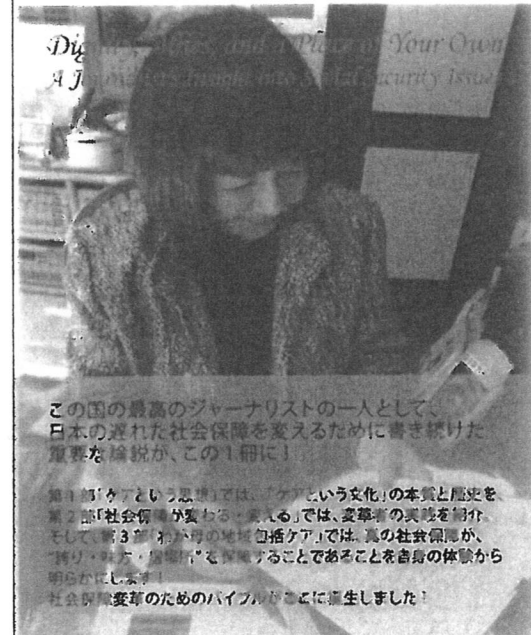 Dignity, Allies, and a Place of Your Own
A Journalist's Insight into Social Security Issues
この国の最高のジャーナリストの一人として、
日本の遅れた社会保障を変えるために書き続けた
重要な論説が、この1冊に!
第1部「ケアという思想」では、「ケアという文化」の本質と歴史を、
第2部「社会保障が変わる・変える」では、変革者の実践を紹介。
そして、第3部「わが母の地域包括ケア」では、真の社会保障が、
“誇り・味方・居場所”を保障することであることを自身の体験から
明らかにします!
社会保障変革のためのバイブルがここに誕生しました!